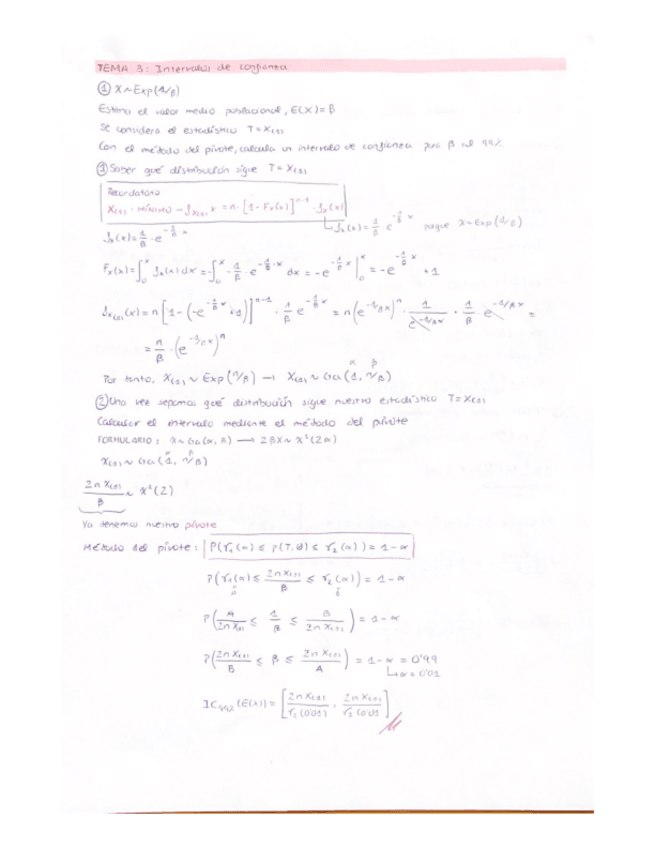 TEMA 3: Intervalos de confianza
① X ~ Exp(1/β)
Estima el valor medio poblacional, E(X) = β
Se considera el estadístico T = X(1)
Con el método del pivote, calcula un intervalo de confianza para β al 99%
① Saber qué distribución sigue T = X(1)
Recordatorio
X(1) = MÍNIMO → f_X(1) x = n · [1 - Fx(x)]^(n-1) · fx(x)
↳ fx(x) = 1/β · e^(-1/β x) porque X ~ Exp(1/β)
fx(x) = 1/β · e^(-1/β x)
Fx(x) = ∫₀ˣ fx(x) dx = -∫₀ˣ - 1/β · e^(-1/β · x) dx = -e^(-1/β x) |₀ˣ = -e^(-1/β x) + 1
f_X(1)(x) = n [1 - (-e^(-1/β x) + 1)]^(n-1) · 1/β e^(-1/β x) = n (e^(-1/β x))^n · 1/e^(-1/β x) · 1/β · e^(-1/β x) =
= n/β · (e^(-1/β x))^n
Por tanto, X(1) ~ Exp(n/β) → X(1) ~ Ga(1, n/β)
② Una vez sepamos qué distribución sigue nuestro estadístico T = X(1)
Calcular el intervalo mediante el método del pivote
FORMULARIO: X ~ Ga(α, β) → 2βX ~ χ²(2α)
X(1) ~ Ga(1, n/β)
2n X(1) / β ~ χ²(2)
Ya tenemos nuestro pivote
Método del pivote: P(γ₁(α) ≤ p(T, θ) ≤ γ₂(α)) = 1 - α
P(γ₁(α) ≤ 2n X(1) / β ≤ γ₂(α)) = 1 - α
A B
P(A / 2n X(1) ≤ 1/β ≤ B / 2n X(1)) = 1 - α
P(2n X(1) / B ≤ β ≤ 2n X(1) / A) = 1 - α = 0'99
↳ α = 0'01
IC99% (E(X)) = [2n X(1) / γ₂(0'01), 2n X(1) / γ₁(0'01)]